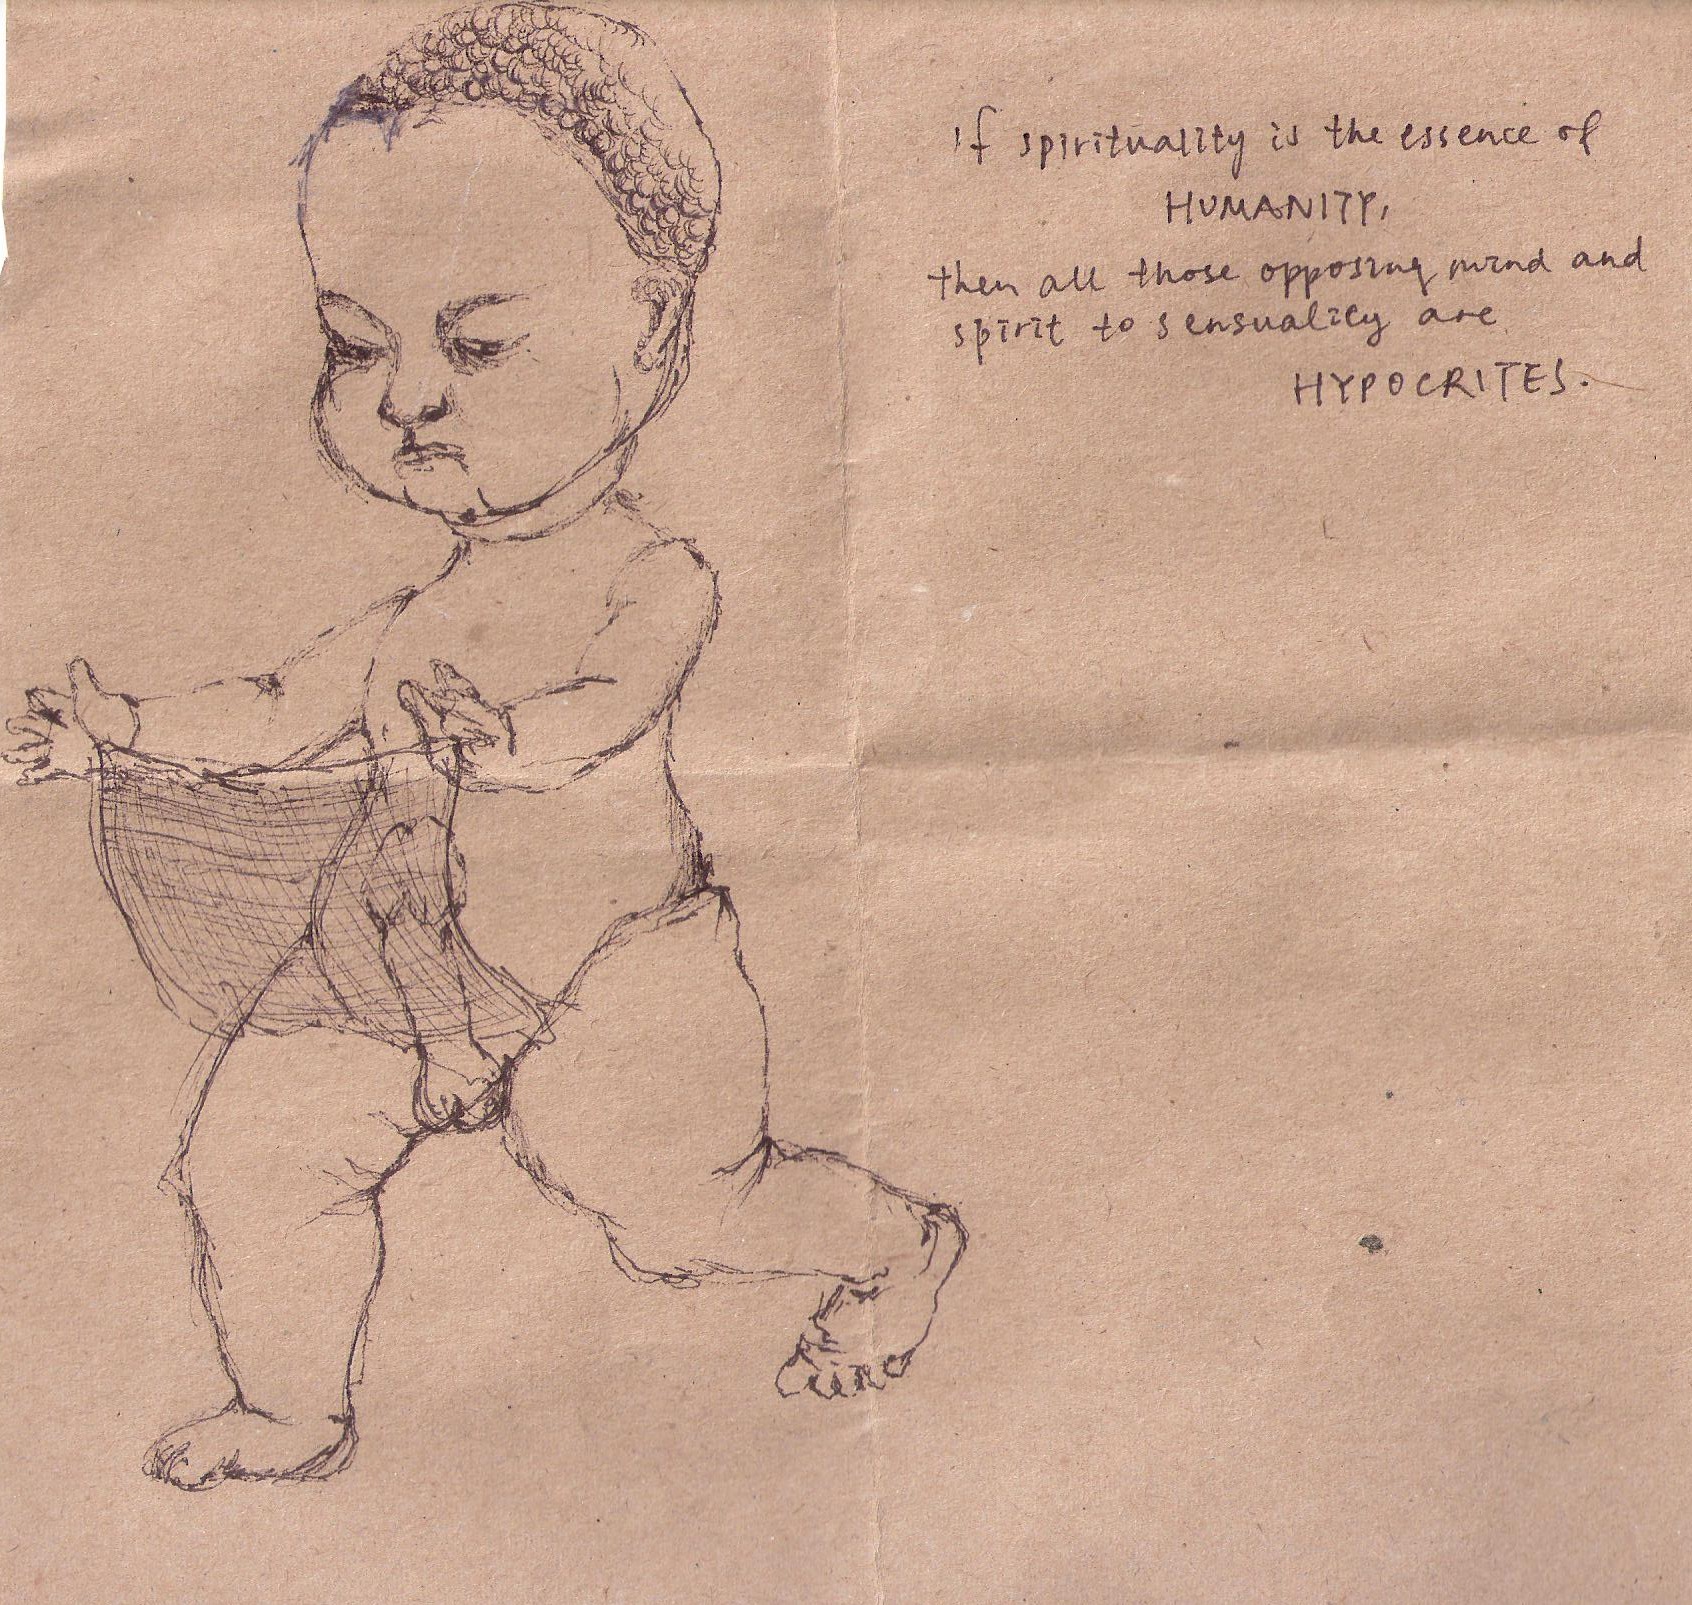 If spirituality is the essence of
HUMANITY,
then all those opposing mind and
spirit to sensuality are
HYPOCRITES.